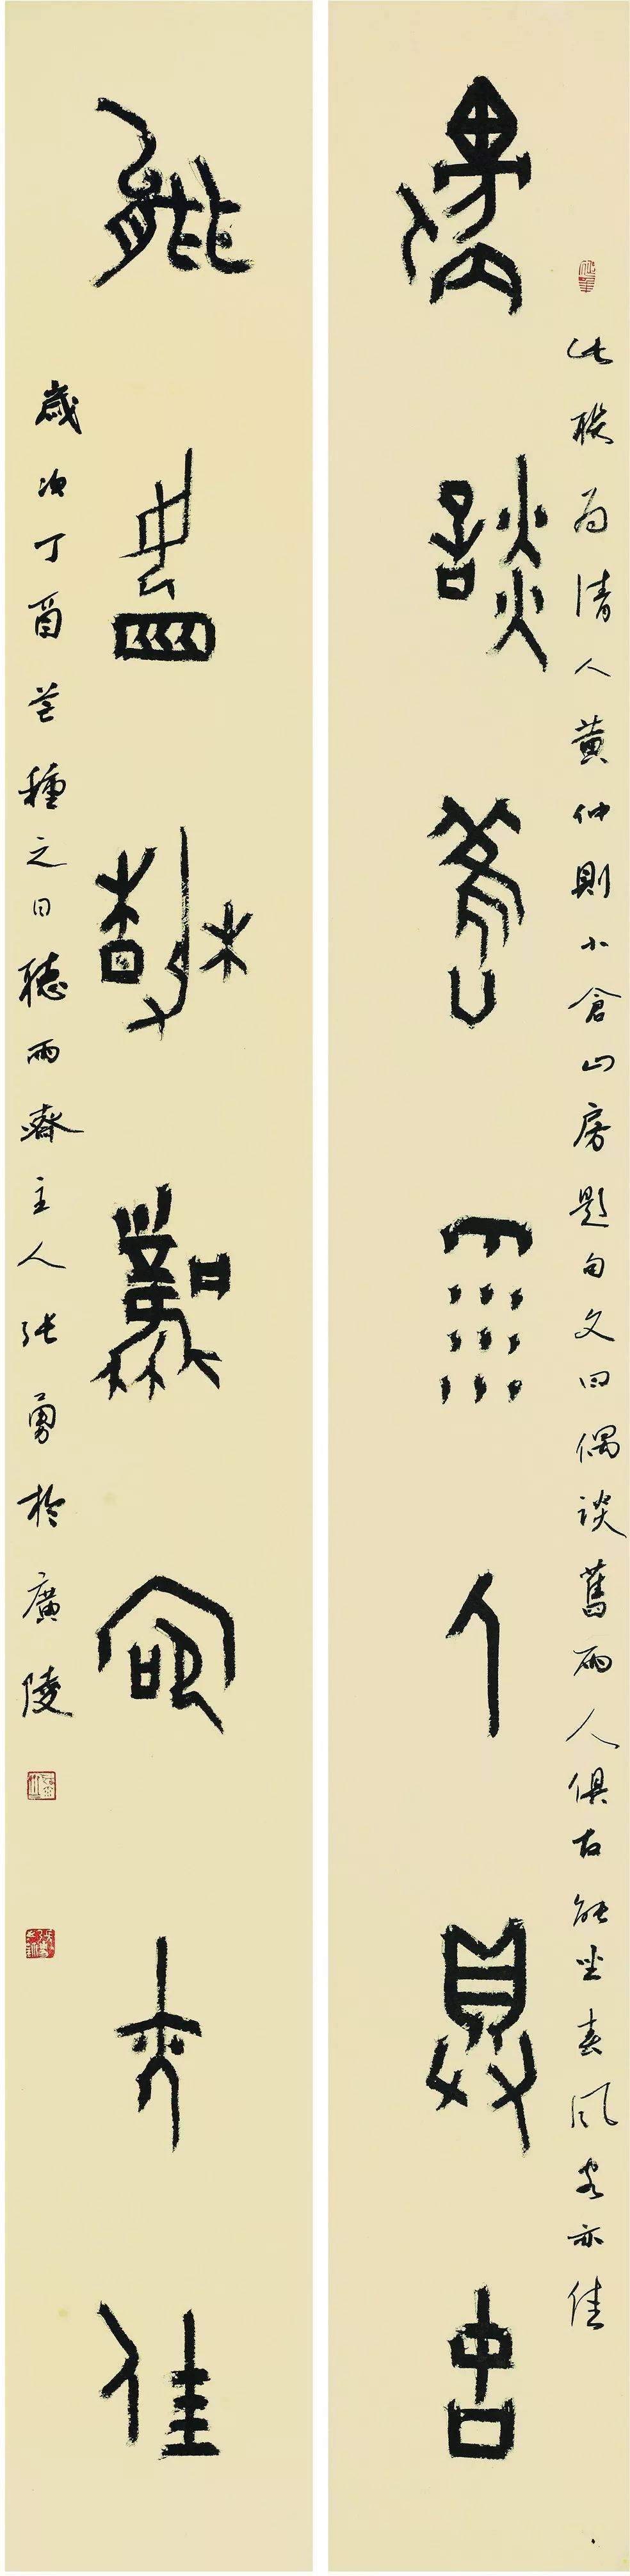 此聯為清人黃仲則小倉山房題句文曰偶談舊雨人俱古能坐春風客亦佳
偶談舊雨人俱古
能坐春風客亦佳
歲次丁酉芒種之日聽雨齋主人張勇於廣陵